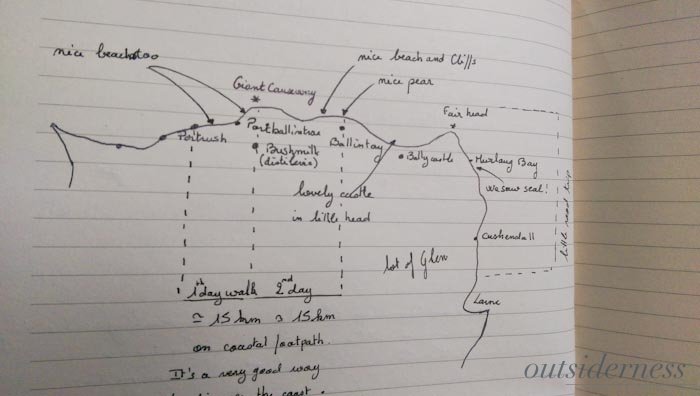 nice beachstoo
nice beach and Cliffs
nice pear
Giant Causeway
Fair head
Portrush
Portballintrae
Bushmilk
(distilerie)
Ballintay
Ballycastle
Murlaug Bay
we saw seal!
lovely castle
in little head
little road trip
Cushendall
lot of Glen
Larne
1th day walk 2nd day
≃ 15 km 15 km
on coastal footpath.
It's a very good way
the coast.
outsiderness